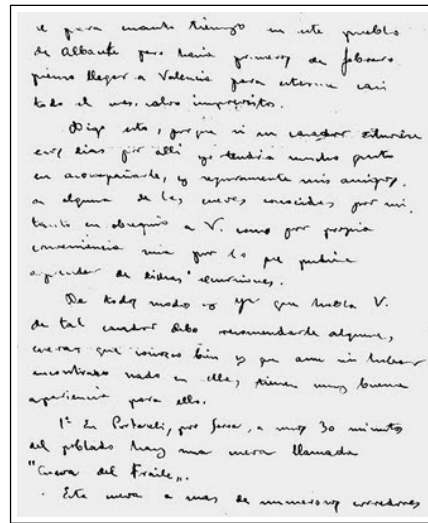 para cuanto tiempo en este pueblo
de Albante pero hacia primeros de febrero
pienso llegar a Valencia para estarme casi
todo el mes, salvo imprevistos.
Digo esto, porque si su cazador estuviese
esos dias por allí yo tendria mucho gusto
en acompañarle, y seguramente mis amigos,
a alguna de las cuevas conocidas por mi,
tanto en obsequio a V. como por propia
conveniencia mia por lo que pudiera
aprender de dichas excursiones.
De todos modos y ya que habla V.
de tal cazador debo recomendarle algunas
cuevas que conozco bien y que aun sin haber
encontrado nada en ellas, tienen muy buena
apariencia para ello.
1ª En Portaceli, por Serra, a unos 30 minutos
del poblado hay una cueva llamada
"Cueva del Fraile".
Esta cueva a mas de numerosos corredores